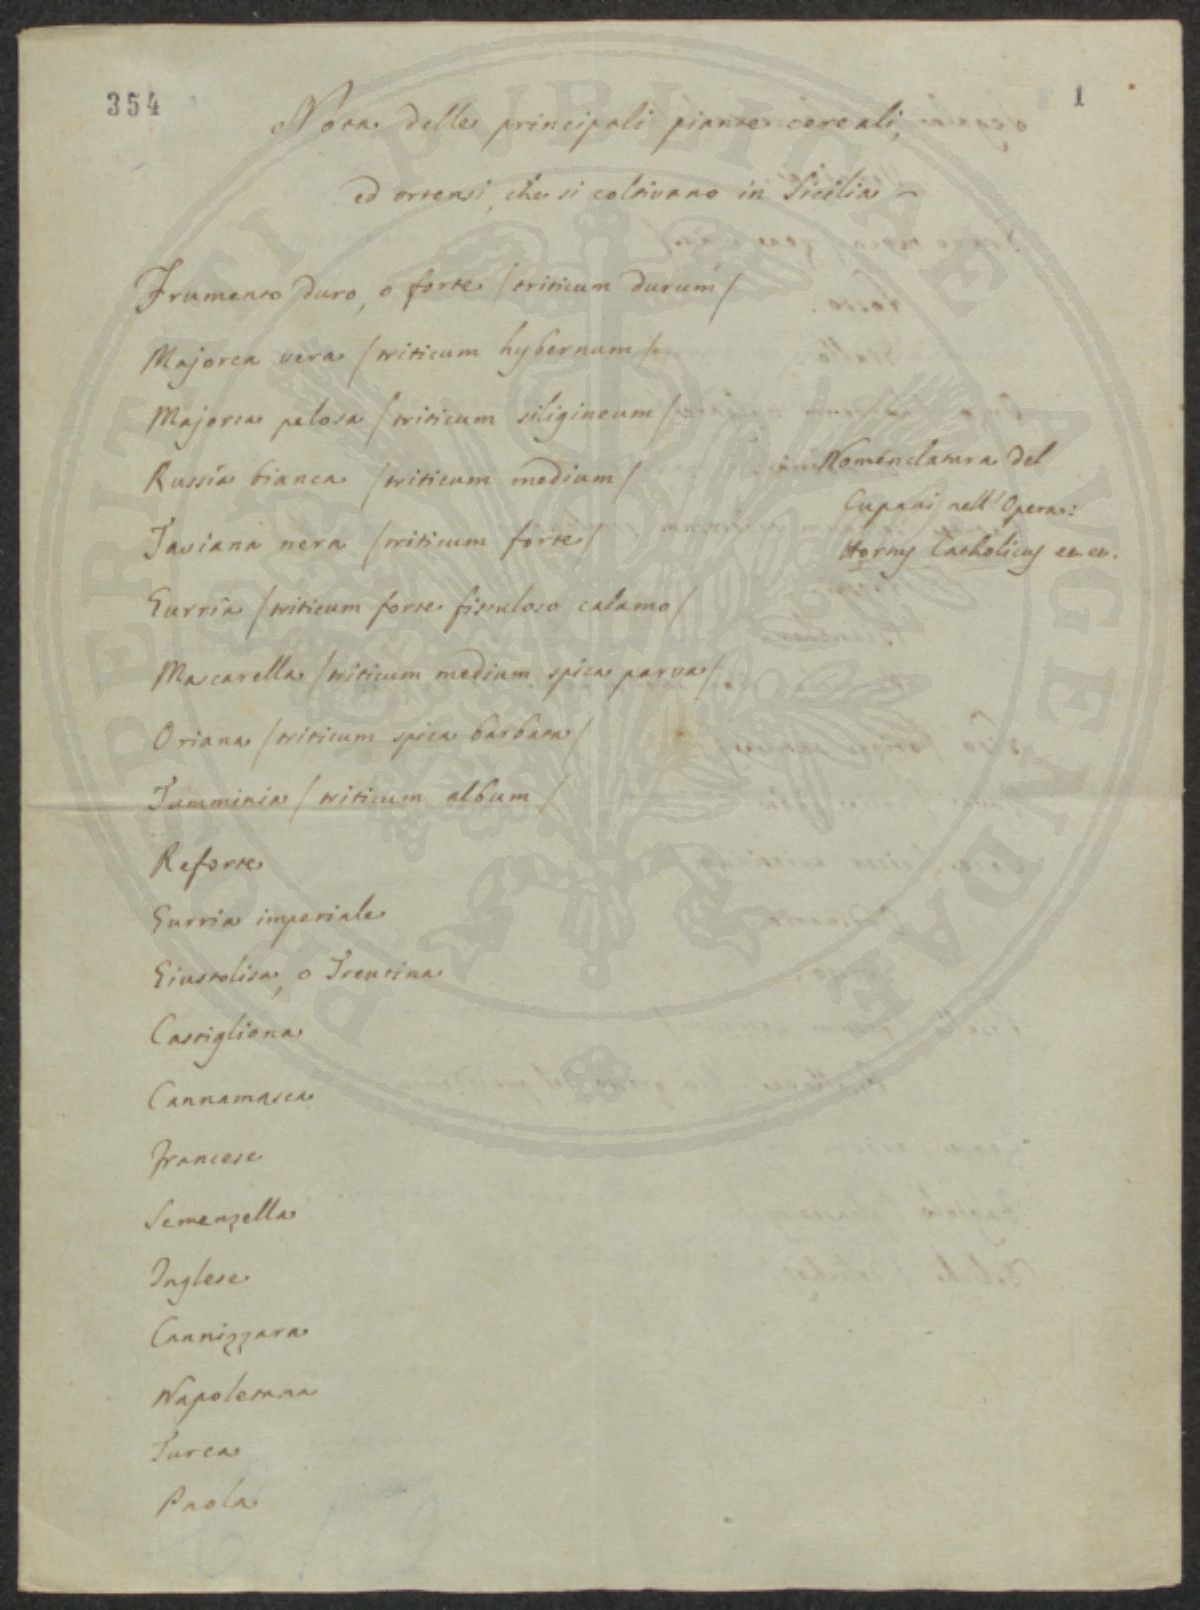 354
1
Nota delle principali piante cereali,
ed ortensi, che si coltivano in Sicilia
Frumento duro, o forte /triticum durum/
Majorca vera /triticum hybernum/
Majorca pelosa /triticum siligineum/
Russia bianca /triticum medium/
Nomenclatura del
Cupani nell'Opera:
Hortus Catholicus
nera /triticum forte/
Gurria /triticum forte fistuloso calamo/
Mascarella /triticum medium spica parva/
Oriana /triticum spica barbata/
Tumminia /triticum album/
Reforte
Gurria imperiale
Giustolisa, o Trentina
Castigliona
Cannamasca
Francese
Semenzella
Inglese
Cannizzara
Napoletana
Turca
Paola
PROSPERITATI PUBLICAE AVGENDAE